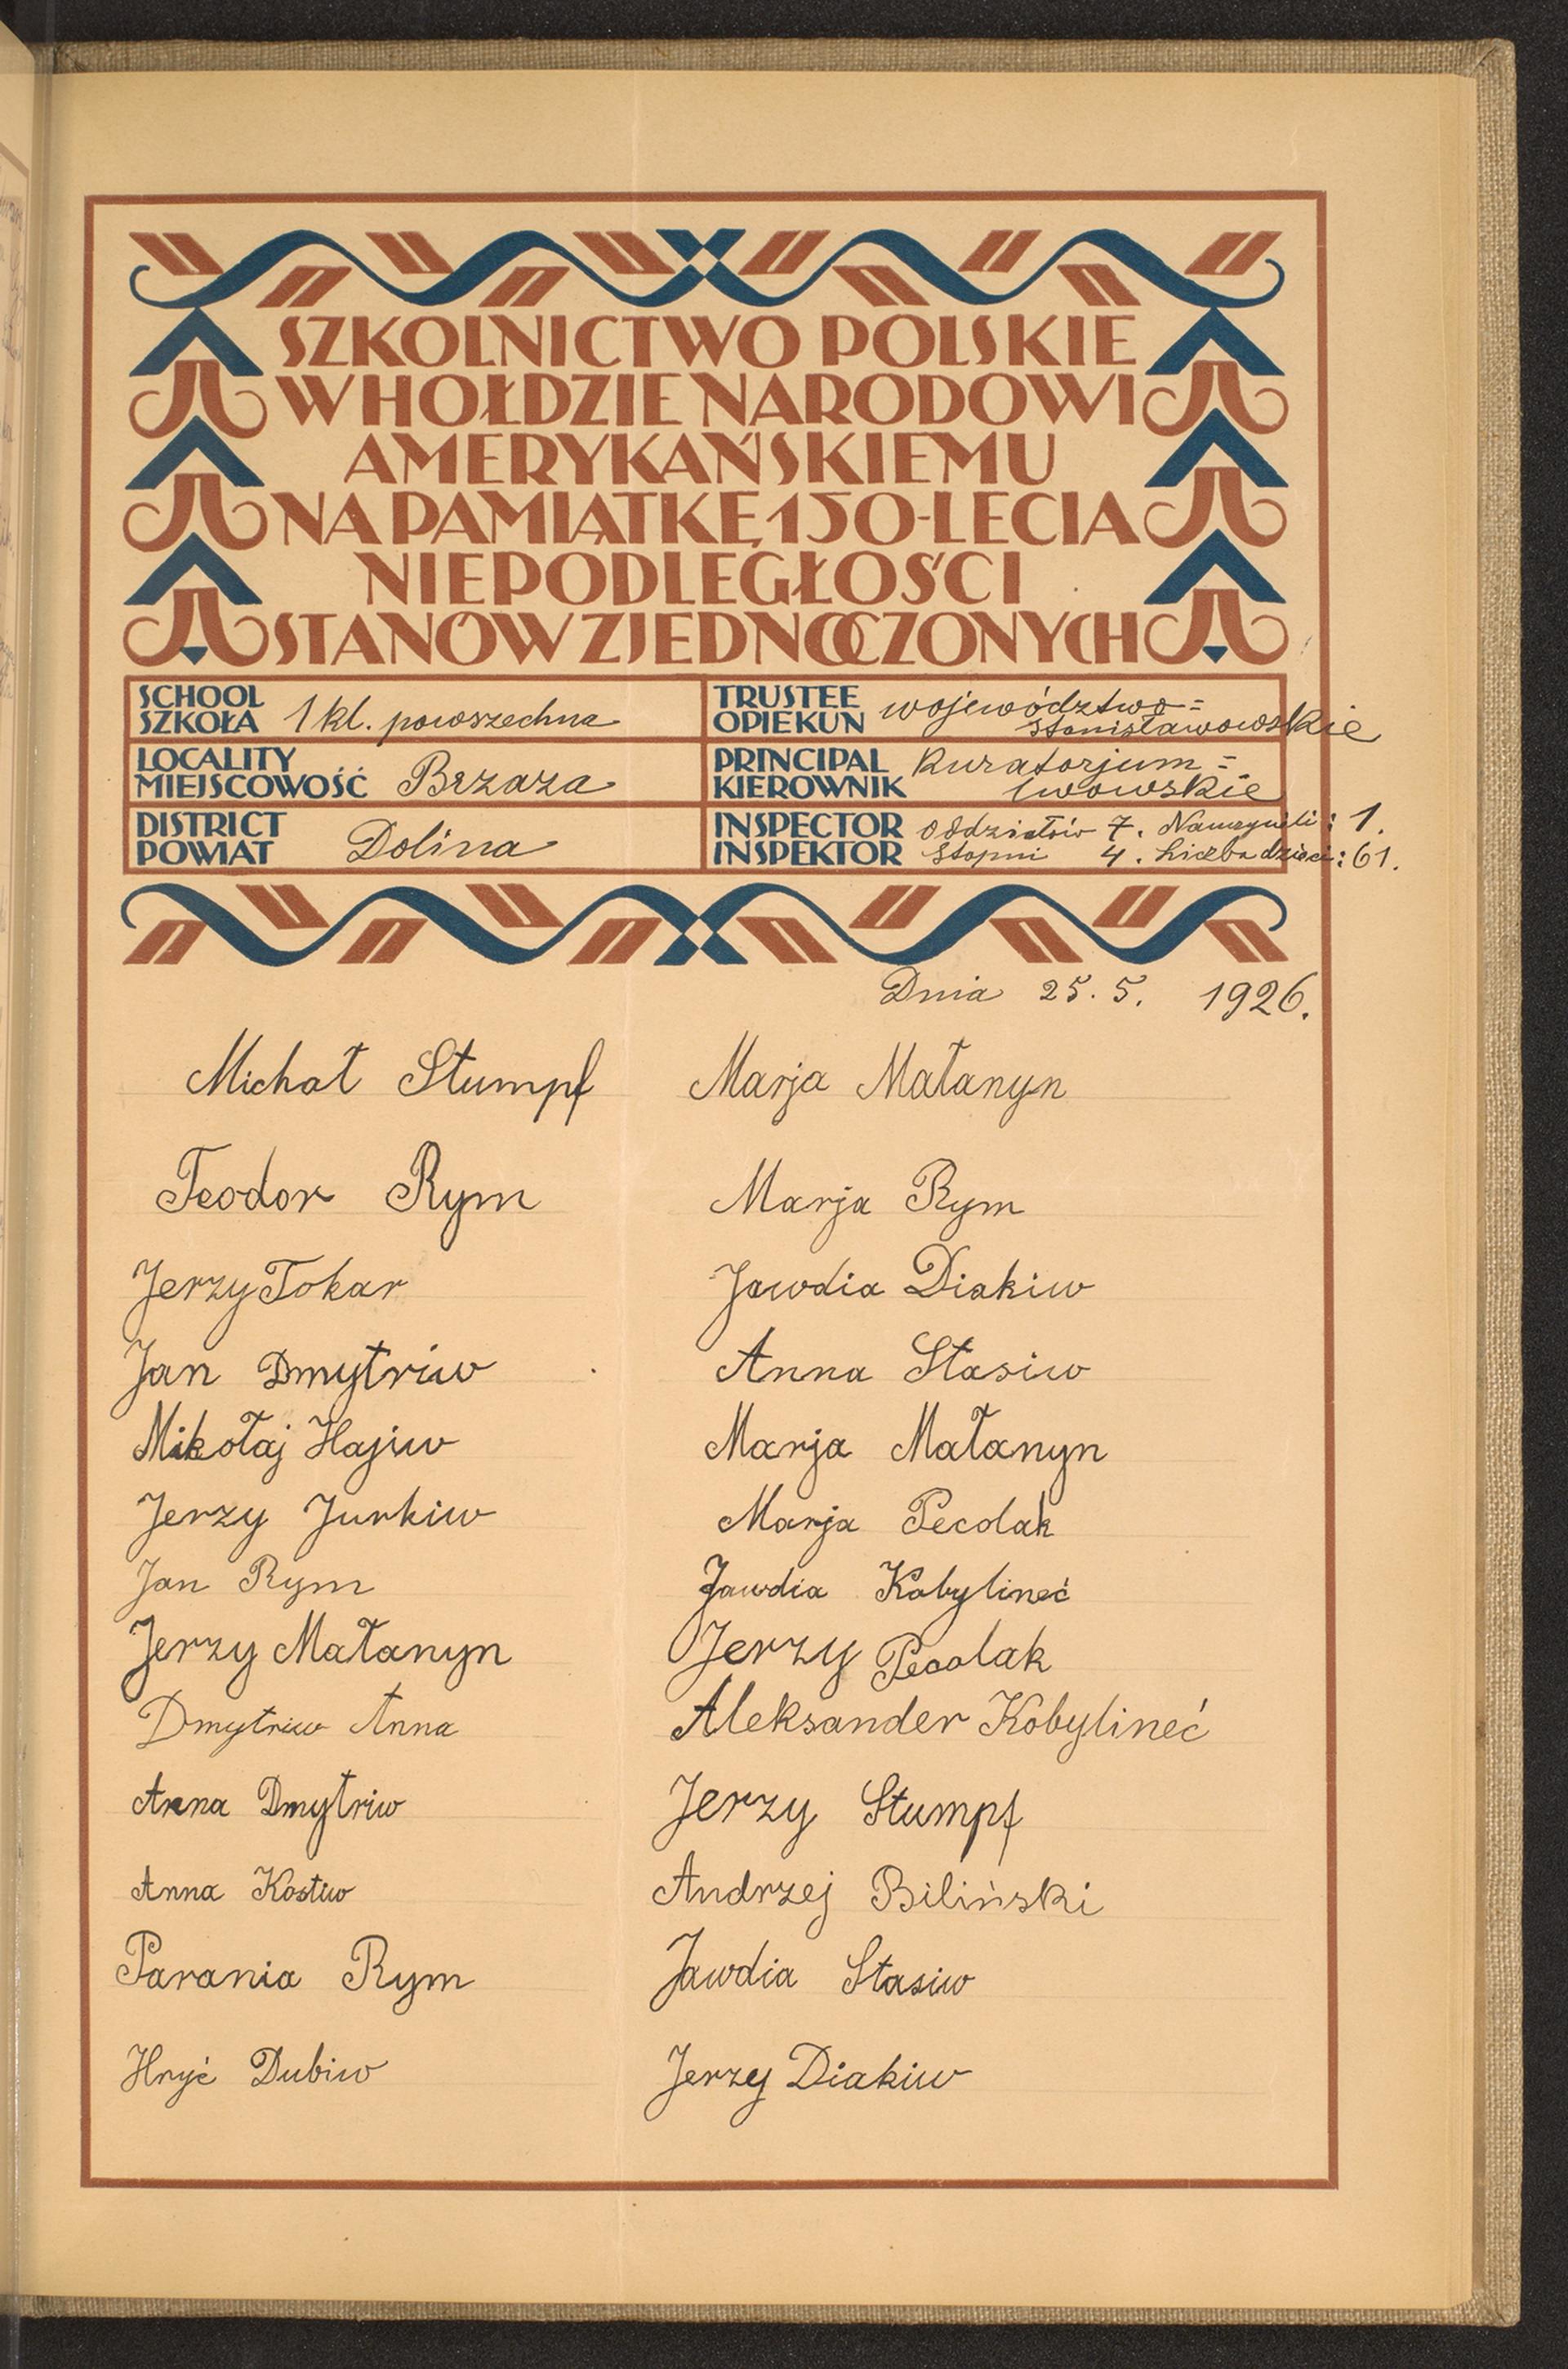 SZKOLNICTWO POLSKIE
W HOŁDZIE NARODOWI
AMERYKAŃSKIEMU
NA PAMIĄTKĘ 150-LECIA
NIEPODLEGŁOŚCI
STANÓW ZJEDNOCZONYCH
SCHOOL
SZKOŁA 1 kl. powszechna
TRUSTEE
OPIEKUN województwo=
stanisławowskie
LOCALITY
MIEJSCOWOŚĆ Brzaza
PRINCIPAL
KIEROWNIK Kuratorjum=
lwowskie
DISTRICT
POWIAT Dolina
INSPECTOR oddziałów 7. Nauczycieli: 1.
INSPEKTOR Stopni 4. Liczba dzieci: 61.
Dnia 25. 5. 1926.
Michał Stumpf
Teodor Rym
Jerzy Tokar
Jan Dmytriw
Mikołaj Hajiw
Jerzy Jurkiw
Jan Rym
Jerzy Małanyn
Dmytriw Anna
Anna Dmytriw
Anna Kostiw
Parania Rym
Hryć Dubiw
Marja Małanyn
Marja Rym
Jawdia Diakiw
Anna Stasiw
Marja Małanyn
Marja Pecolak
Jawdia Kobylineć
Jerzy Pecolak
Aleksander Kobylineć
Jerzy Stumpf
Andrzej Biliński
Jawdia Stasiw
Jerzy Diakiw